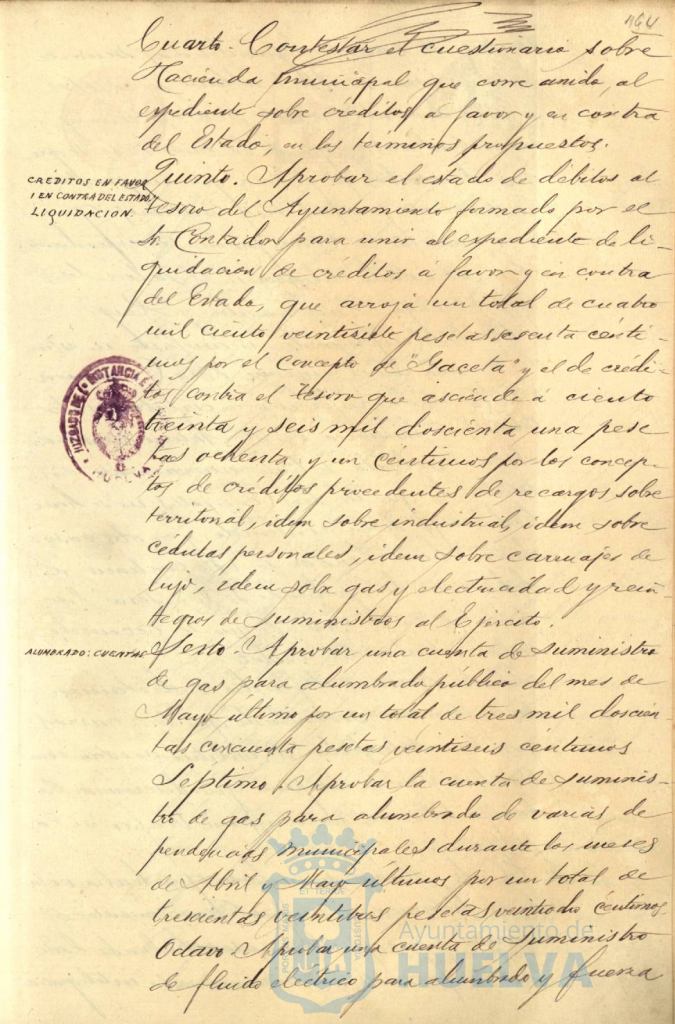 164
Cuarto. Contestar el cuestionario sobre
Hacienda municipal que corre unido, al
expediente sobre créditos á favor y en contra
del Estado, en los términos propuestos.
CREDITOS EN FAVOR
I EN CONTRA DEL ESTADO,
LIQUIDACION.
Quinto. Aprobar el estado de débitos al
Tesoro del Ayuntamiento formado por el
Sr. Contador para unir al expediente de li-
quidación de créditos á favor y en contra
del Estado, que arroja un total de cuatro
mil ciento veintisiete pesetas sesenta cénti-
mos por el concepto de "Gaceta" y el de crédi-
tos contra el Tesoro que asciende á ciento
treinta y seis mil doscienta una pese
tas ochenta y un céntimos por los concep-
tos de créditos procedentes de recargos sobre
territorial, idem sobre industrial, idem sobre
cédulas personales, idem sobre carruajes de
lujo, idem sobre gas y electricidad y rein-
tegros de suministros al Ejército.
JUZGADO DE 1ª INSTANCIA E
HUELVA
ALUMBRADO: CUENTAS
Sexto. Aprobar una cuenta de suministro
de gas para alumbrado público del mes de
Mayo último por un total de tres mil doscien
tas cincuenta pesetas veintiseis céntimos
Séptimo. Aprobar la cuenta de suminis-
tro de gas para alumbrado de varias de
pendencias municipales durante los meses
de Abril y Mayo últimos por un total de
trescientas veintitres pesetas céntimos.
Octavo. Aprobar una cuenta de suministro
de fluido eléctrico para alumbrado y fuerza
Ayuntamiento de
HUELVA